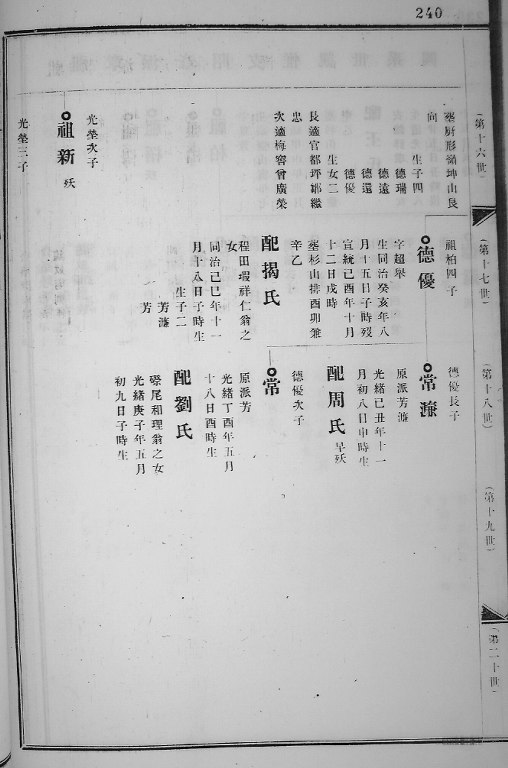 240
(第十六世)
(第十七世)
(第十八世)
(第十九世)
(第二十世)
塟屏形嶺坤山艮
向
生子四
德瑞
德遠
德還
德優
生女二
長適官都坪鄢繼
忠
次適梅窖曾廣榮
光榮次子
祖新 殀
光榮三子
祖柏四子
德優
字超舉
生同治癸亥年八
月十五日子時歿
宣統己酉年十月
十二日戌時
塟杉山排酉卯兼
辛乙
配揭氏
程田塅祥仁翁之
女
同治己巳年十一
月十八日子時生
生子二
芳濂
芳
德優長子
常濂
原派芳濂
光緒己丑年十一
月初八日申時生
配周氏 早殀
德優次子
常
原派芳
光緒丁酉年五月
十八日酉時生
配劉氏
磜尾和理翁之女
光緒庚子年五月
初九日子時生